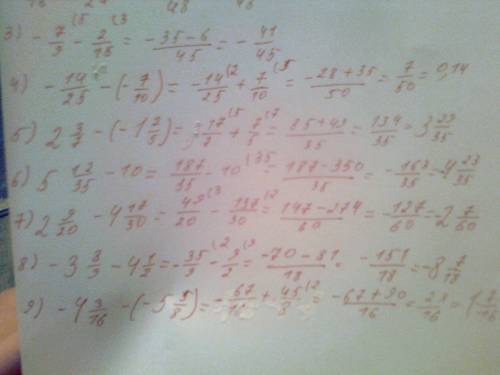 3) - 7/9 (5 - 2/15 (3 = -35-6/45 = - 41/45
4) - 14/25 - (- 7/10) = -14/25 (2 + 7/10 (5 = -28+35/50 = 7/50 = 0,14
5) 2 3/7 - (-1 2/5) = 17/7 (5 + 7/5 (7 = 85+49/35 = 134/35 = 3 29/35
6) 5 12/35 - 10 = 187/35 - 10 (35 = 187-350/35 = - 163/35 = -4 23/35
7) 2 9/20 - 4 17/30 = 49/20 (3 - 137/30 (2 = 147-274/60 = -127/60 = -2 7/60
8) - 3 8/9 - 4 1/2 = - 35/9 (2 - 9/2 (9 = -70-81/18 = -151/18 = -8 7/18
9) - 4 3/16 - (-5 5/8) = - 67/16 + 45/8 (2 = -67+90/16 = 23/16 = 1 7/16